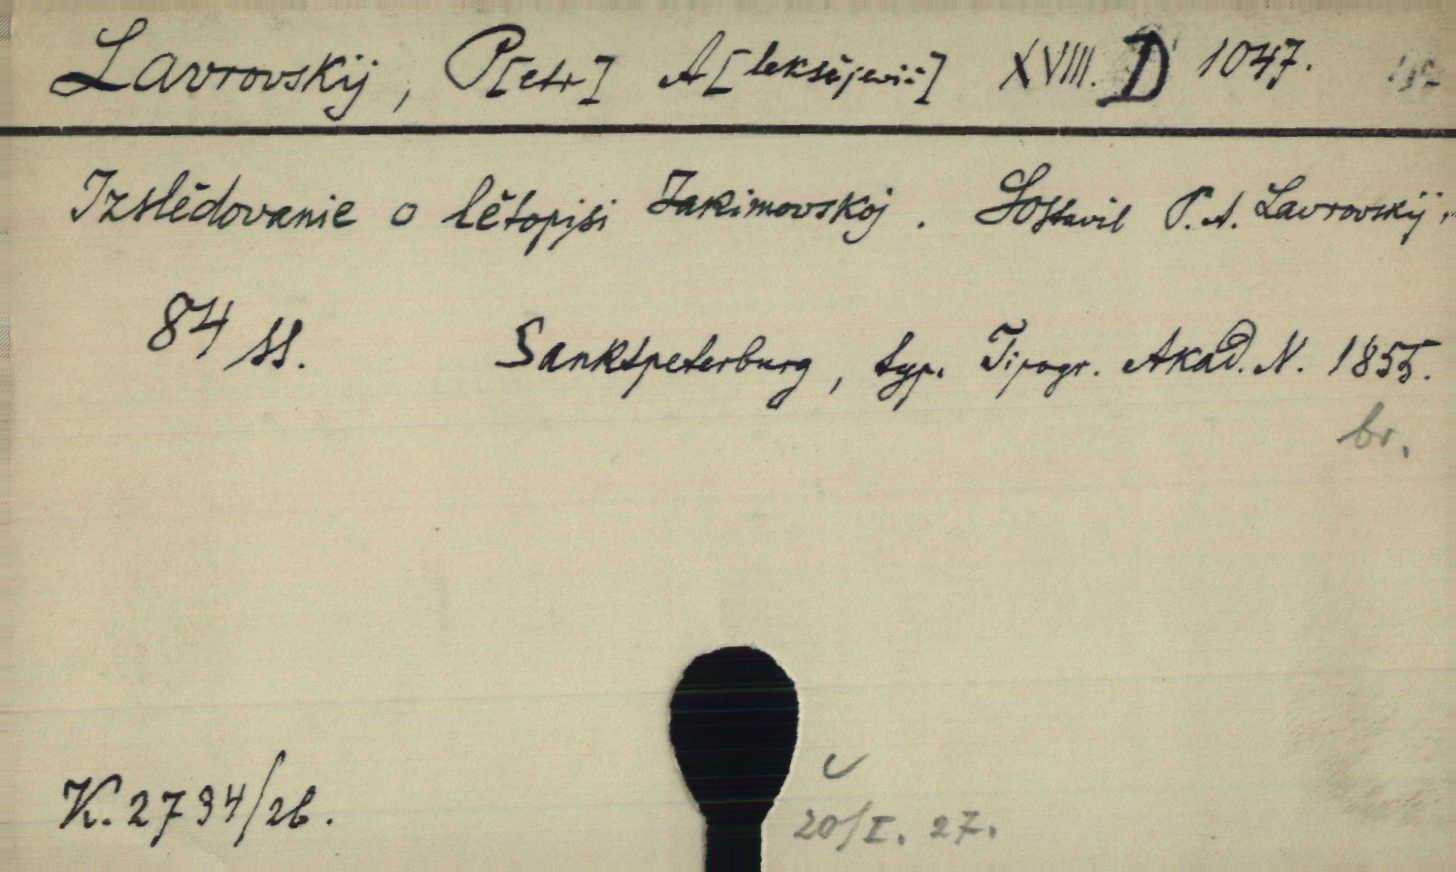 Lavrovskij, P[etr] A[leksějevič] XVIII. D 1047.
Izslědovanie o lětopisi Jakimovskoj. Sostavil P. A. Lavrovskij.
84 ss. Sanktpeterburg, typ. Tipogr. Akad. N. 1855.
br.
K. 2794/26.
20/I. 27.